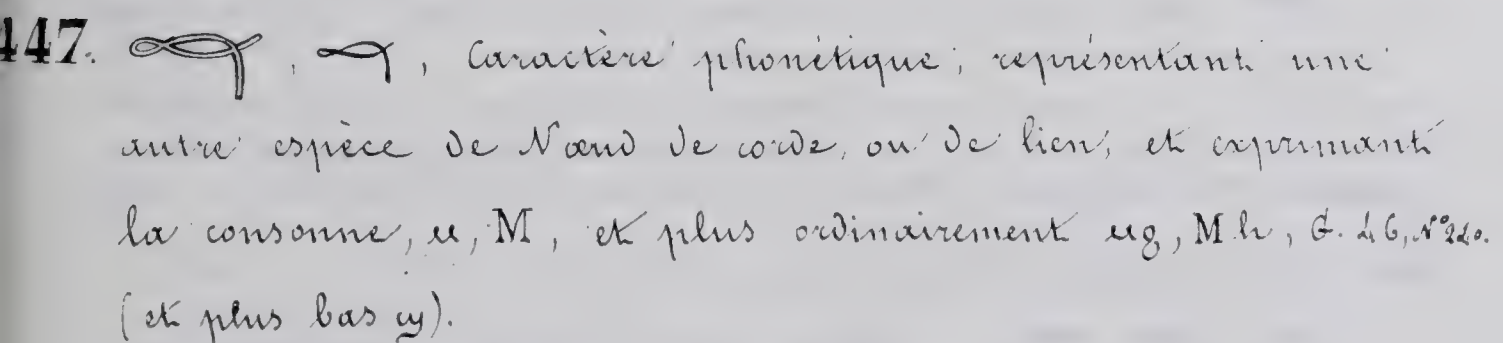 447. , , Caractère phonétique; représentant une
autre espèce de Nœud de corde, ou de lien, et exprimant
la consonne, ⲙ, M, et plus ordinairement ⲙϩ, M.h, G. 46, N° 220.
(et plus bas ϣ).